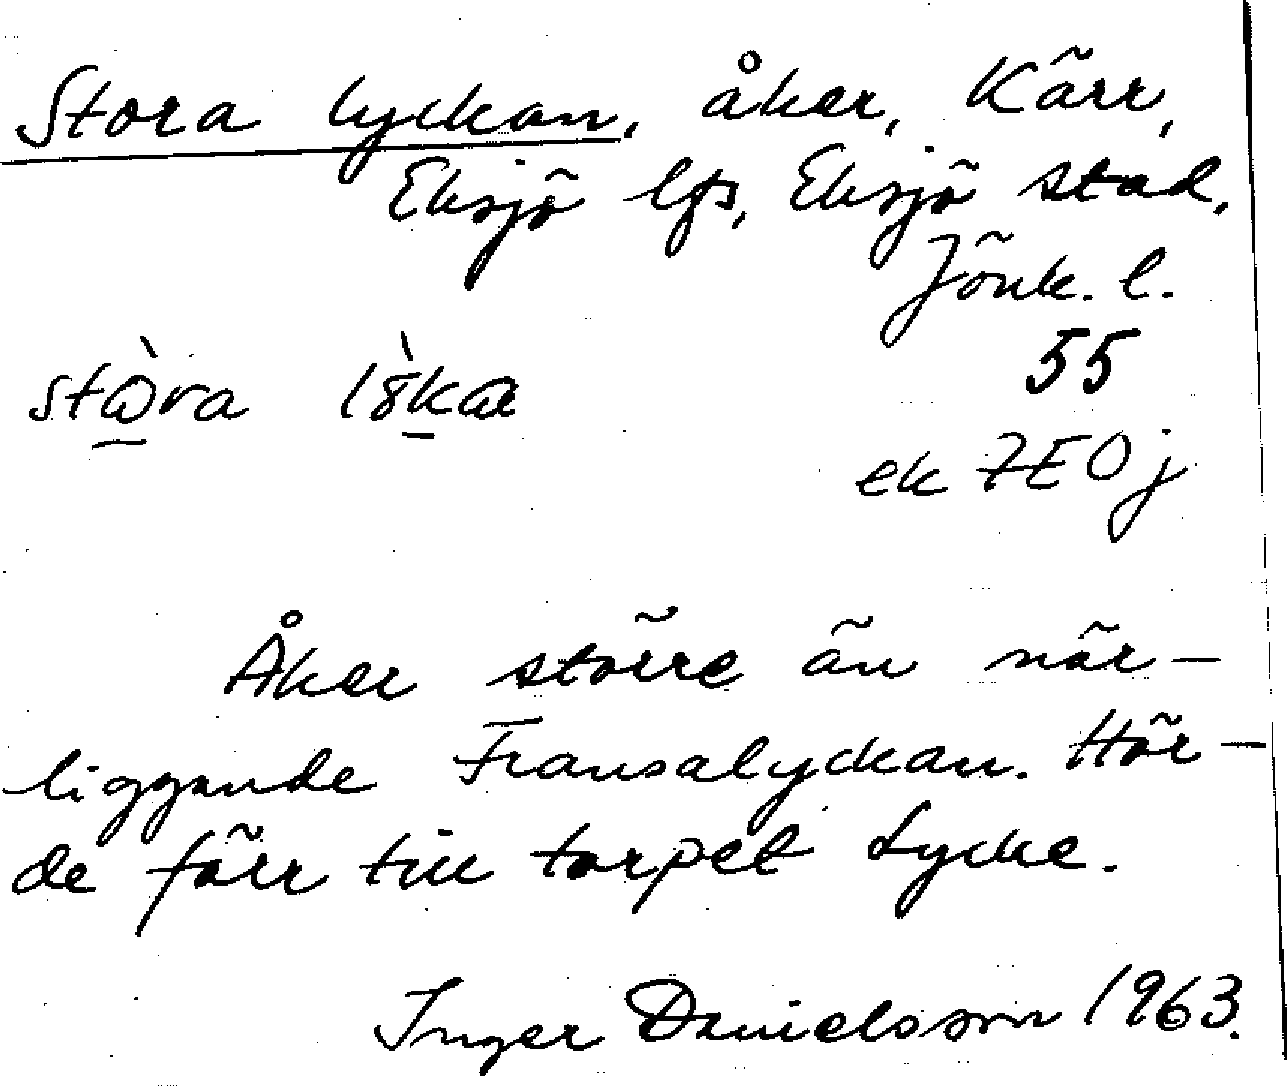 Stora lyckan, åker, Kärr,
Eksjö lfs, Eksjö stad,
Jönk. l.
55
ek 7E0j
Åker större än när-
liggande Fransalyckan. Hör-
de förr till torpet Lycke.
Inger Danielsson 1963.